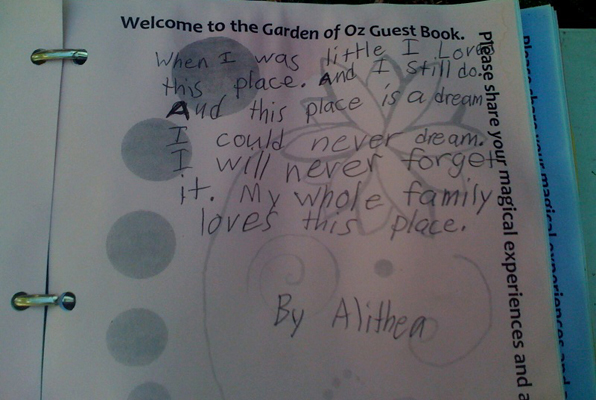 Welcome to the Garden of Oz Guest Book.
When I was little I Love
this place. And I still do.
And this place is a dream
I could never dream.
I will never forget
it. My whole family
loves this place.
By Alithea
Please share your magical experiences and a
Please share your magical experiences and